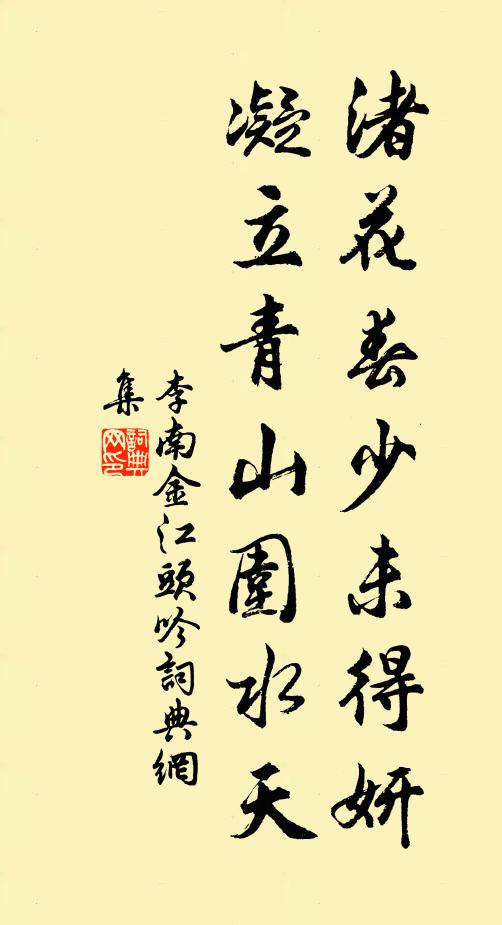 渚花春少未得妍
凝立青山圍水天
李南金江頭吟詞典網
集
詞典
网印